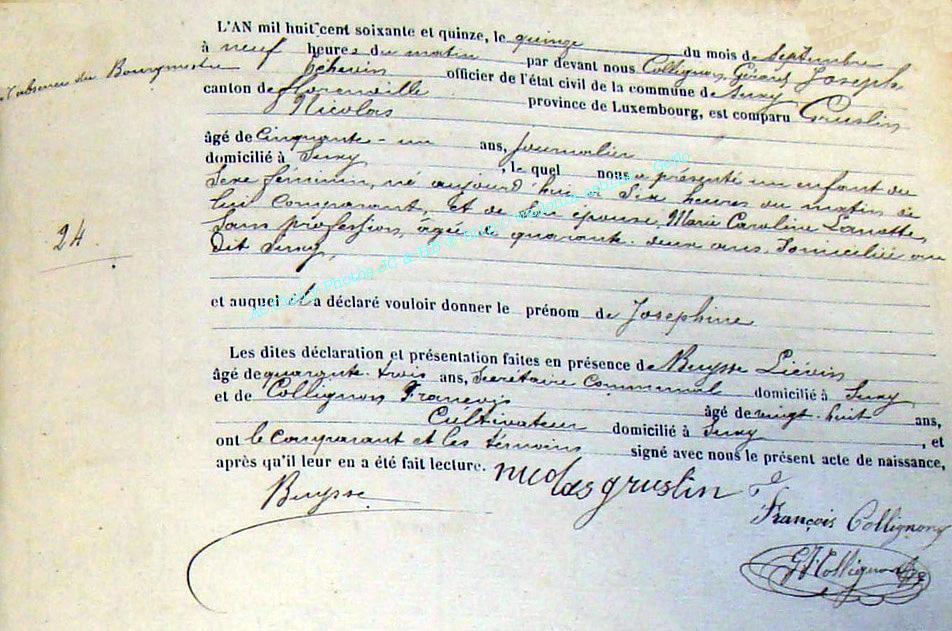 L'AN mil huit cent soixante et quinze, le quinze du mois de Septembre
à neuf heures du matin par devant nous Collignon, Gérard Joseph
l'absence du Bourgmestre
échevin officier de l'état civil de la commune de Suxy
canton de Florenville province de Luxembourg, est comparu Gruslin
Nicolas
âgé de Cinquante-un ans, Journalier
domicilié à Suxy, le quel nous a présenté un enfant du
Sexe féminin, né aujourd'hui à Six heures du matin de
lui comparant, et de Son épouse, Marie Caroline Lanotte,
Sans profession, âgée de quarante-deux ans, domiciliée au
dit Suxy,
24
et auquel il a déclaré vouloir donner le prénom de Josephine
Les dites déclaration et présentation faites en présence de Buysse Liévin
âgé de quarante-trois ans, Secrétaire Communal domicilié à Suxy,
et de Collignon François âgé de vingt-huit ans,
Cultivateur domicilié à Suxy, et
ont le Comparant et les témoins signé avec nous le présent acte de naissance,
après qu'il leur en a été fait lecture. nicolas gruslin
Buysse
François Collignon
GJ Collignon